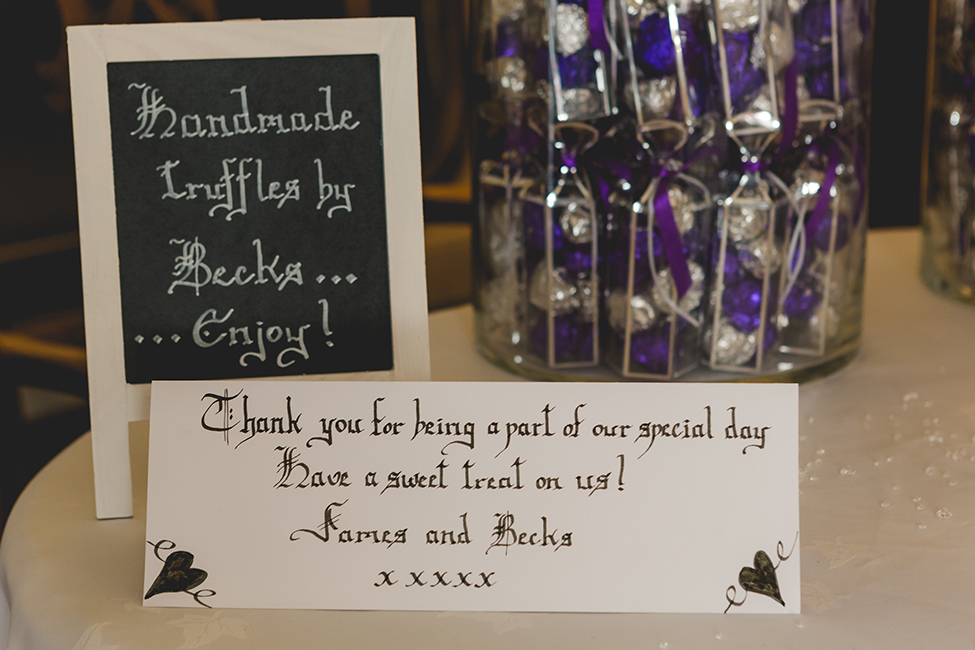 Handmade
truffles by
Becks...
...Enjoy!
Thank you for being a part of our special day
Have a sweet treat on us!
James and Becks
x x x x x